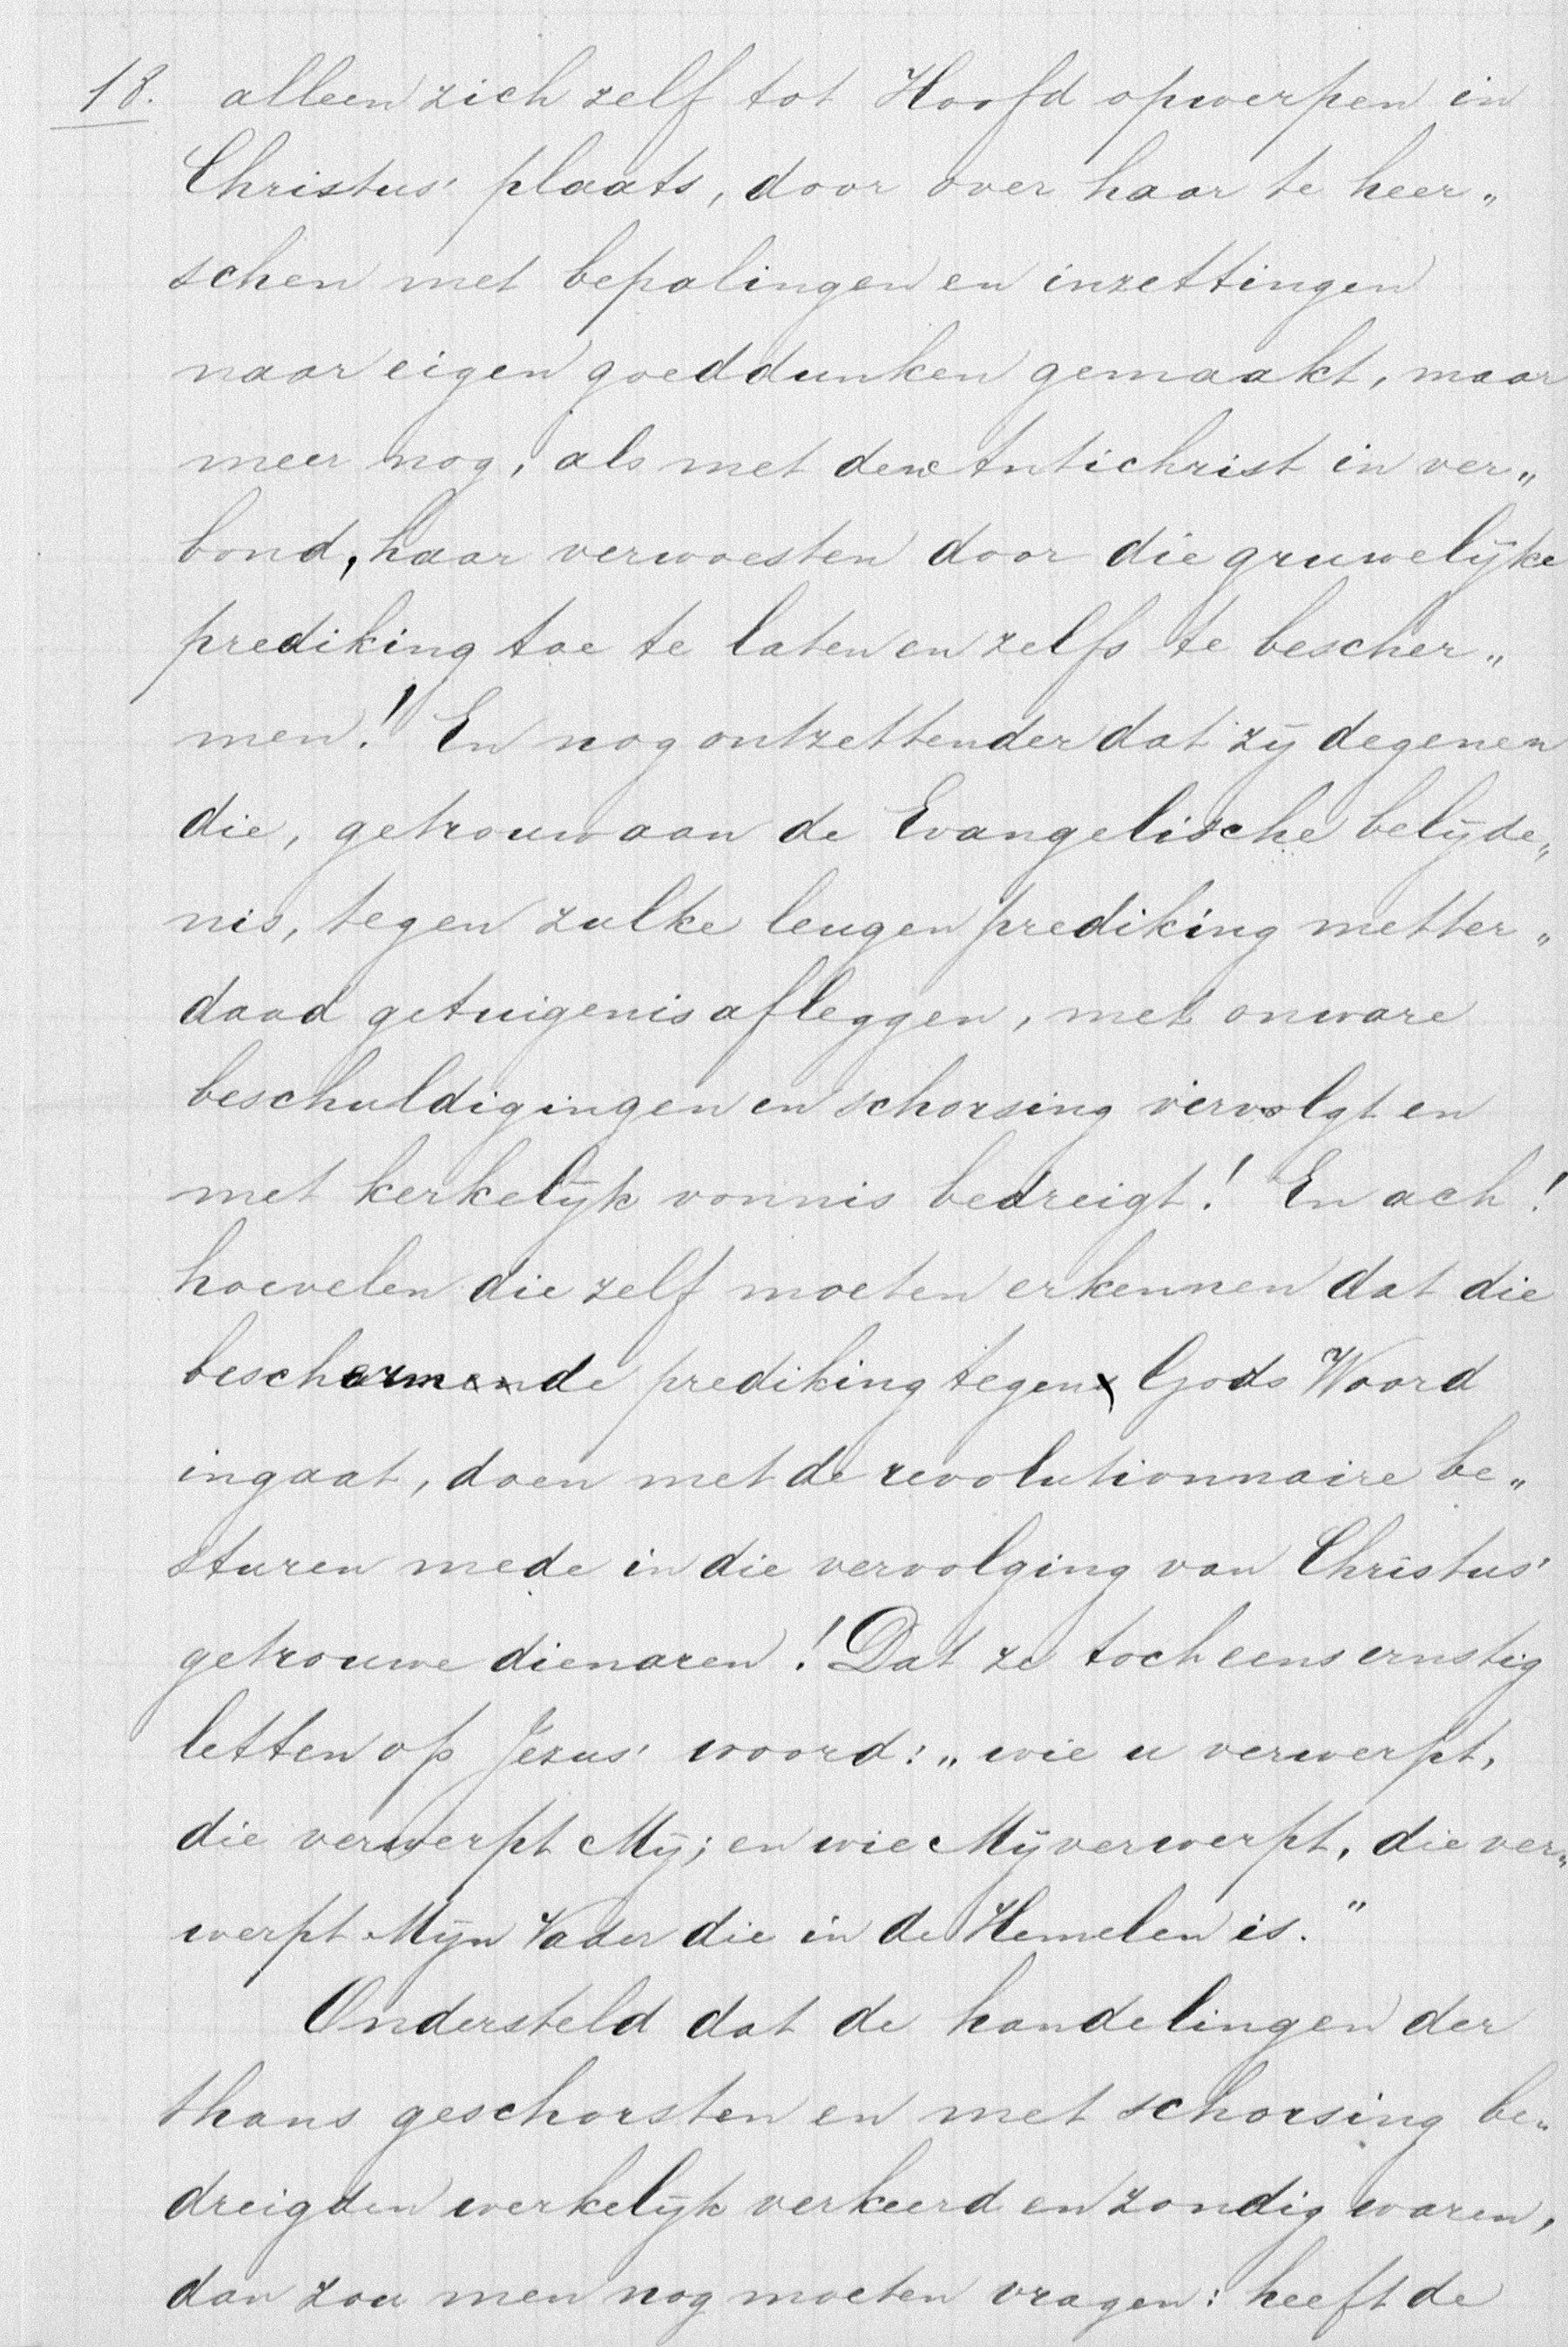 18. alleen zich zelf tot Hoofd opwerpen in
Christus' plaats, door over haar te heer„
schen met bepalingen en inzettingen
naar eigen goeddunken gemaakt, maar
meer nog, als met den Antichrist in ver„
bond, haar verwoesten door die gruwelijke
prediking toe te laten en zelfs te bescher„
men! En nog ontzettender dat zij degenen
die, getrouw aan de Evangelische belijde„
nis, tegen zulke leugenprediking metter„
daad getuigenis afleggen, met onware
beschuldigingen en schorsing vervolgt en
met kerkelijk vonnis bedreigt! En ach!
hoevelen die zelf moeten erkennen dat die
beschermde prediking tegen Gods Woord
ingaat, doen met de revolutionnaire be„
sturen mede in die vervolging van Christus'
getrouwe dienaren! Dat ze toch eens ernstig
letten op Jezus' woord: „wie u verwerpt,
die verwerpt Mij; en wie Mij verwerpt, die ver„
werpt Mijn Vader die in de Hemelen is."
Ondersteld dat de handelingen der
thans geschorsten en met schorsing be„
dreigden werkelijk verkeerd en zondig waren,
dan zou men nog moeten vragen: heeft de